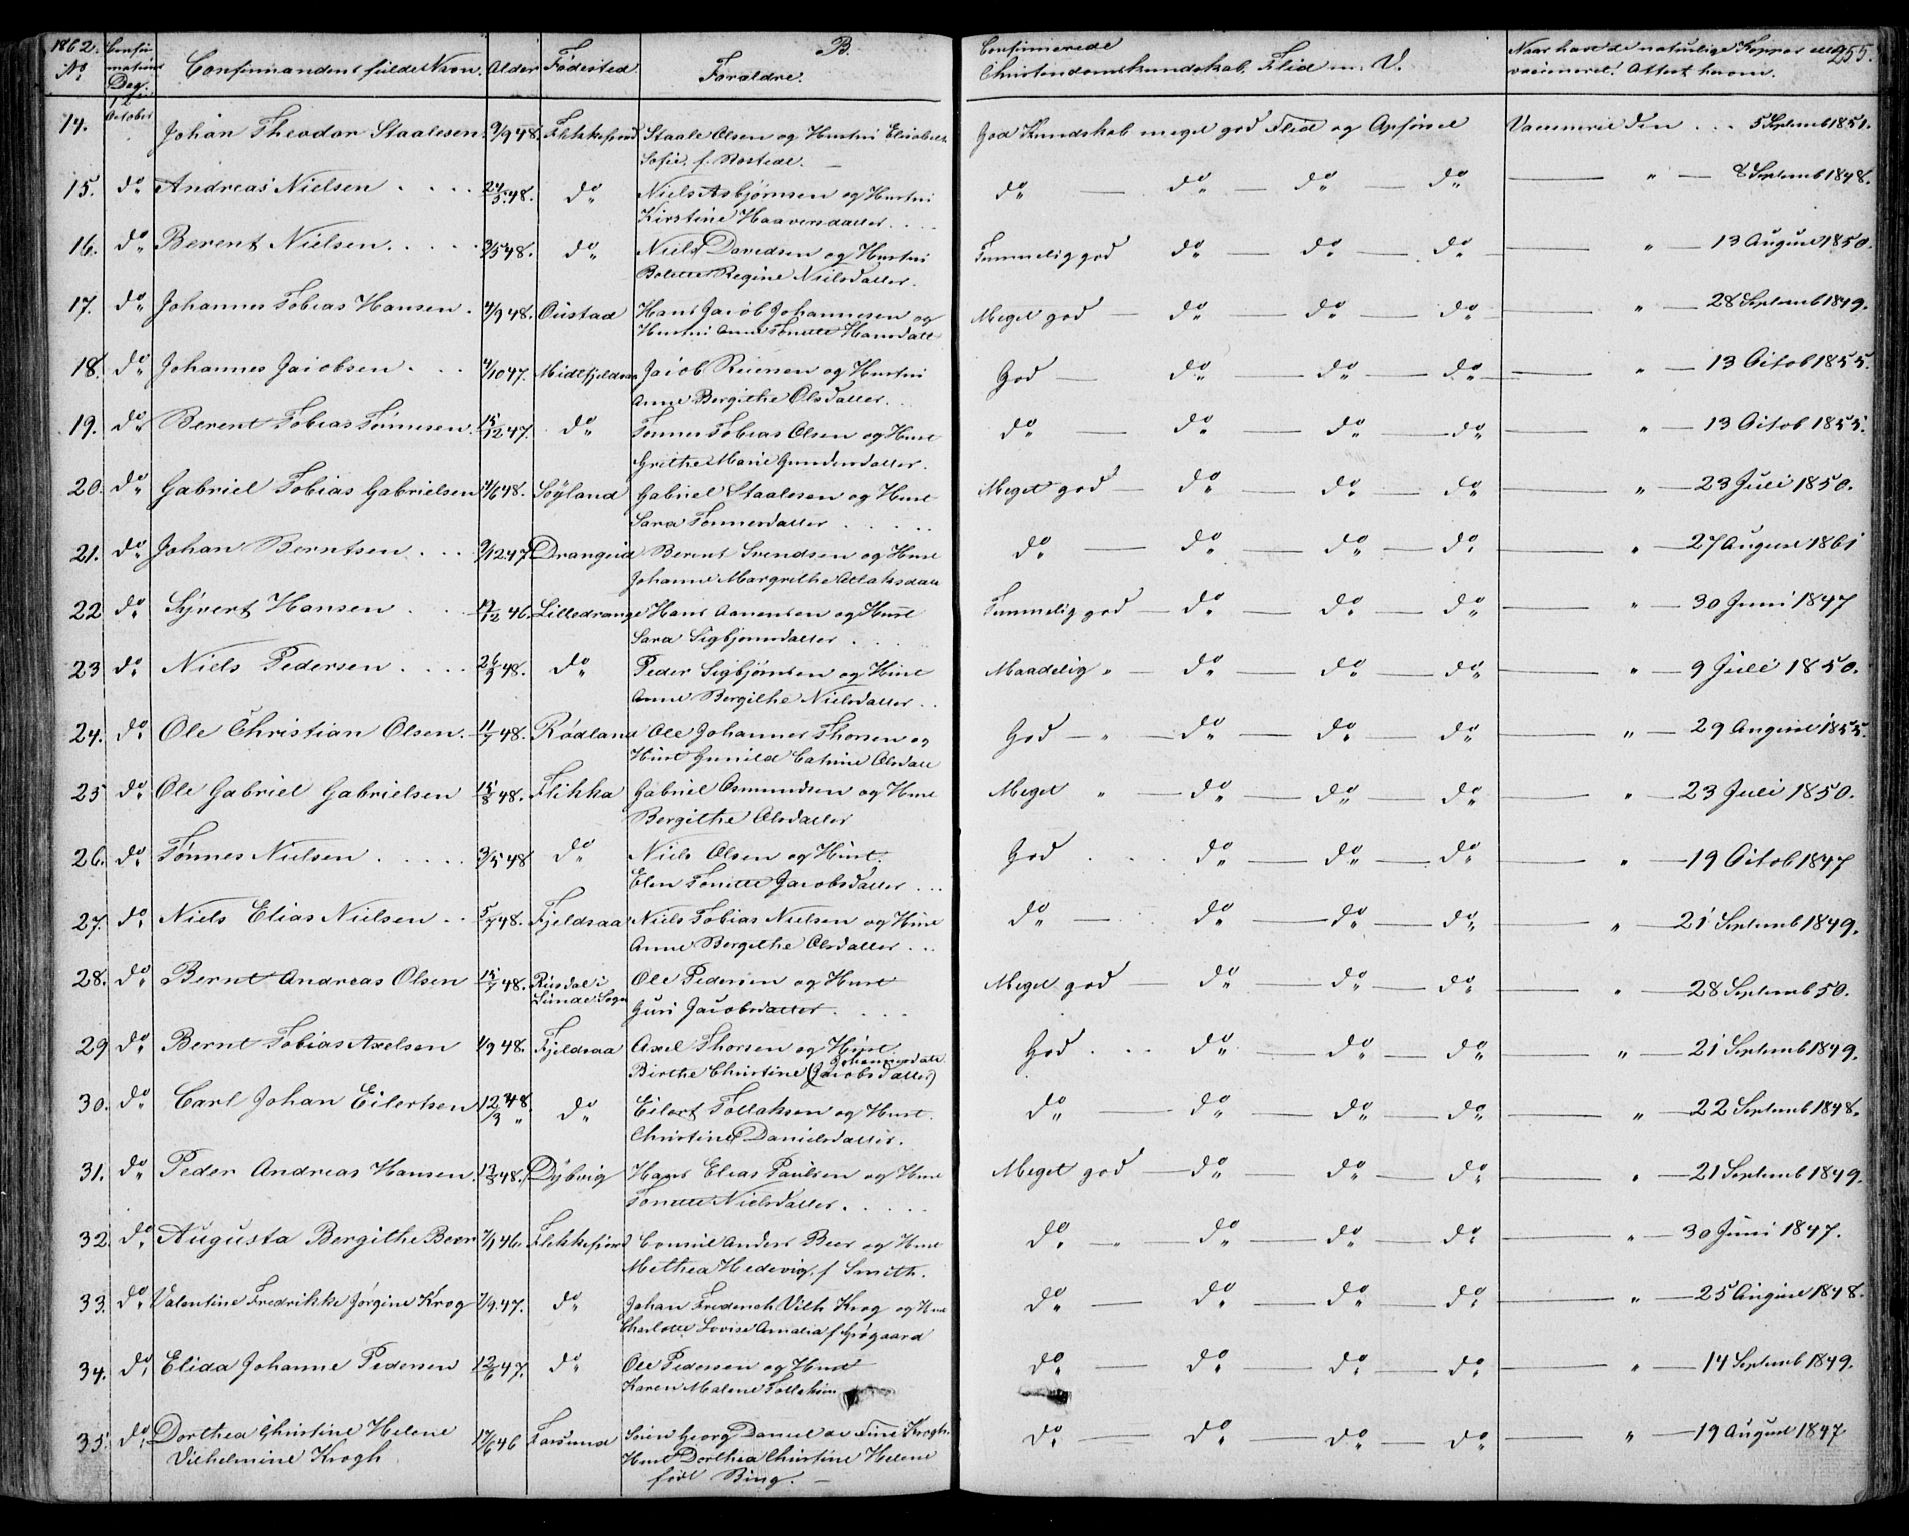 1862. Confirmations Dag. B. Confirmerede 255.
No Confirmandens fulde Navn. Alder Fødested. Forældre. Christendomskundskab, Flid m. V. Naar havt de naturlige Kopper eller vaccineret? Attest herom.
14. 12 October Johan Theodor Staalesen. 9/9 48. Flekkefjord Staale Olsen og Hustru Elisabeth God Kundskab meget god Flid og Opførsel Vaccineret den . . . 5 Septemb 1851.
Sofie f. Rostede.
15. do Andreas Nielsen . . . . 24/5 48. do Niels Asbjørnsen og Hustru do — do — do — do — " — 8 Septemb 1848.
Kirstine Haaversdatter . . . .
16. do Berent Nielsen . . . . . 3/5 48. do Niels Davidsen og Hustru Temmelig god do — do — do — " — 13 August 1850.
Bolette Regine Nielsdatter.
17. do Johannes Tobias Hansen . 4/9 48. Oustad Hans Jacob Johannesen og Meget god — do — do — do — " — 28 Septemb 1849.
Hustru Anne Tonette Hansdatt
18. do Johannes Jacobsen . . . 4/10 47. Midtfjeldsaa Jacob Reiersen og Hustru God — do — do — do — " — 13 Octob 1855.
Anne Bergithe Olsdatter . .
19. do Berent Tobias Tønnesen. 15/12 47. do Tønnes Tobias Olsen og Hust do — do — do — do — " — 13 Octob 1855.
Grethe Marie Gundersdatter.
20. do Gabriel Tobias Gabrielsen 4/6 48. Søyland Gabriel Staalesen og Hust Meget god — do — do — do — " — 23 Juli 1850.
Sara Tønnesdatter . . . . .
21. do Johan Berntsen . . . 9/12 47 Drangeid Berent Svendsen og Hust do — do — do — do — " — 27 August 1861
Johanne Margrethe Atlaksdatt
22 do Syvert Hansen . . . 19/12 46. Lilledrange Hans Aanensen og Hust Temmelig god — do — do — do — " — 30 Juni 1847
Sara Sigbjørnsdatter . . .
23 do Niels Pedersen . . . . 26/3 48. do Peder Sigbjørnsen og Hust Maadelig " — do — do — do — " — 9 Juli 1850.
Anne Bergithe Nielsdatter . .
24. do Ole Christian Olsen. 11/7 48. Rødland Ole Johannes Thorsen og God — " — do — do — do — " — 29 August 1855.
Hust Gunild Catrine Olsdatt
25 do Ole Gabriel Gabrielsen 15/8 48. Flikka Gabriel Osmundsen og Hust Meget " — do — do — do — " — 23 Juli 1850.
Bergithe Olsdatter
26. do Tønnes Nielsen . . . . . 3/5 48 do Niels Olsen og Hust. God . . . . do — do — do — " — 19 Octob 1847
Elen Tonette Jacobsdatter . . .
27. do Niels Elias Nielsen . . 5/7 48. Fjeldsaa Niels Tobias Nielsen og Hust do — do — do — do — " — 21 Septemb 1849.
Anne Bergithe Olsdatter . . .
28. do Bernt Andreas Olsen 15/7 48. Risdal i Ole Pedersen og Hust Meget god — do — do — do — " — 28 Septemb 50.
Lunde Sogn Guri Jacobsdatter . . . .
29 do Bernt Tobias Axelsen 1/9 48. Fjeldsaa Axel Thorsen og Hust God . . . do — do — do — " — 21 Septemb 1849.
Johannesdatt
Birthe Christine (Jacobsdatter)
30. do Carl Johan Eilertsen 12/3 48 do Eilert Tollaksen og Hust. do — do — do — do — " — 22 Septemb 1848.
Christine Danielsdatter.
31. do Peder Andreas Hansen. 13/8 48. Dybvig Hans Elias Paulsen og Hust Meget god — do — do — do — " — 21 Septemb 1849.
Tonette Nielsdatter . . . . .
32. do Augusta Bergithe Beer 7/1 46. Flekkefjord Consul Anders Beer og Hust do " do — do — do — " — 30 Juni 1847.
Methea Hedevig f Smith.
33. do Valentine Fredrikke Jørgine Krog 7/9 47. do Johan Frederich Vilh Krog og Hust do — do — do — do — " — 25 August 1848.
Charlotte Lovise Amalia f
34. do Elida Johanne Pedersen 12/6 47. do Ole Pedersen og Hust do — do — do — do — " — 14 Septemb 1849.
Karen Malene
35. do Dorthea Christine Helene 17/6 46 Farsund Søren Georg Daniel de Fine Krogh. do — do — do — do — " — 19 August 1847
Vilhelmine Krogh Hust Dorthea Christine Helene
født Bing. —